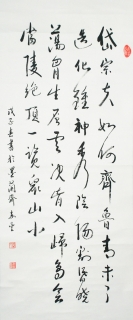 岱宗夫如何齊魯青未了
造化鍾神秀陰陽割昏曉
蕩胸生层雲決眥入歸鳥會
當凌絕頂一覽衆山小